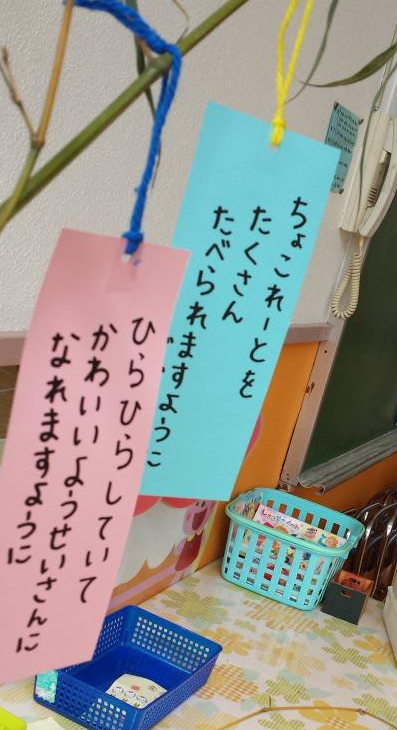 ちょこれーとを
たくさん
たべられますように
ひらひらしていて
かわいいようせいさんに
なれますように